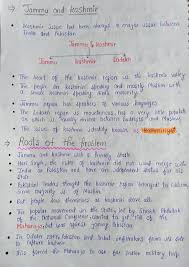 → Jammu and Kashmir
• Kashmir issue had been always a major issue between
India and Pakistan
Jammu & Kashmir
Jammu Kashmir Ladakh
• The heart of the Kashmir region is the Kashmir valley
• The people are Kashmiri speaking and mostly Muslim with
a small Kashmiri speaking Hindu minority
• Jammu region has speakers of various languages
• The Ladakh region is mountainous, has a very little population
which is equally divided between Buddhist and Muslims
• The issue of Kashmir identity known as Kashmiriyat
→ Roots of the problem
• Jammu and Kashmir was a Princely State
• Hari Singh, the ruler of Kashmir did not want to merge with
India or Pakistan and have an independent status for his
state
• Pakistani leaders thought the Kashmir region belonged to
some majority is of Muslim
• But people saw themselves as Kashmiri above all
• The popular movement in the state, led by Sheikh Abdullah
of the National Conference, wanted to get rid of the
Maharaja but was against joining Pakistan
• In October 1947, Pakistan sent tribal infiltrators from its side
to capture Kashmir
• This forced the Maharaja to ask for Indian military help